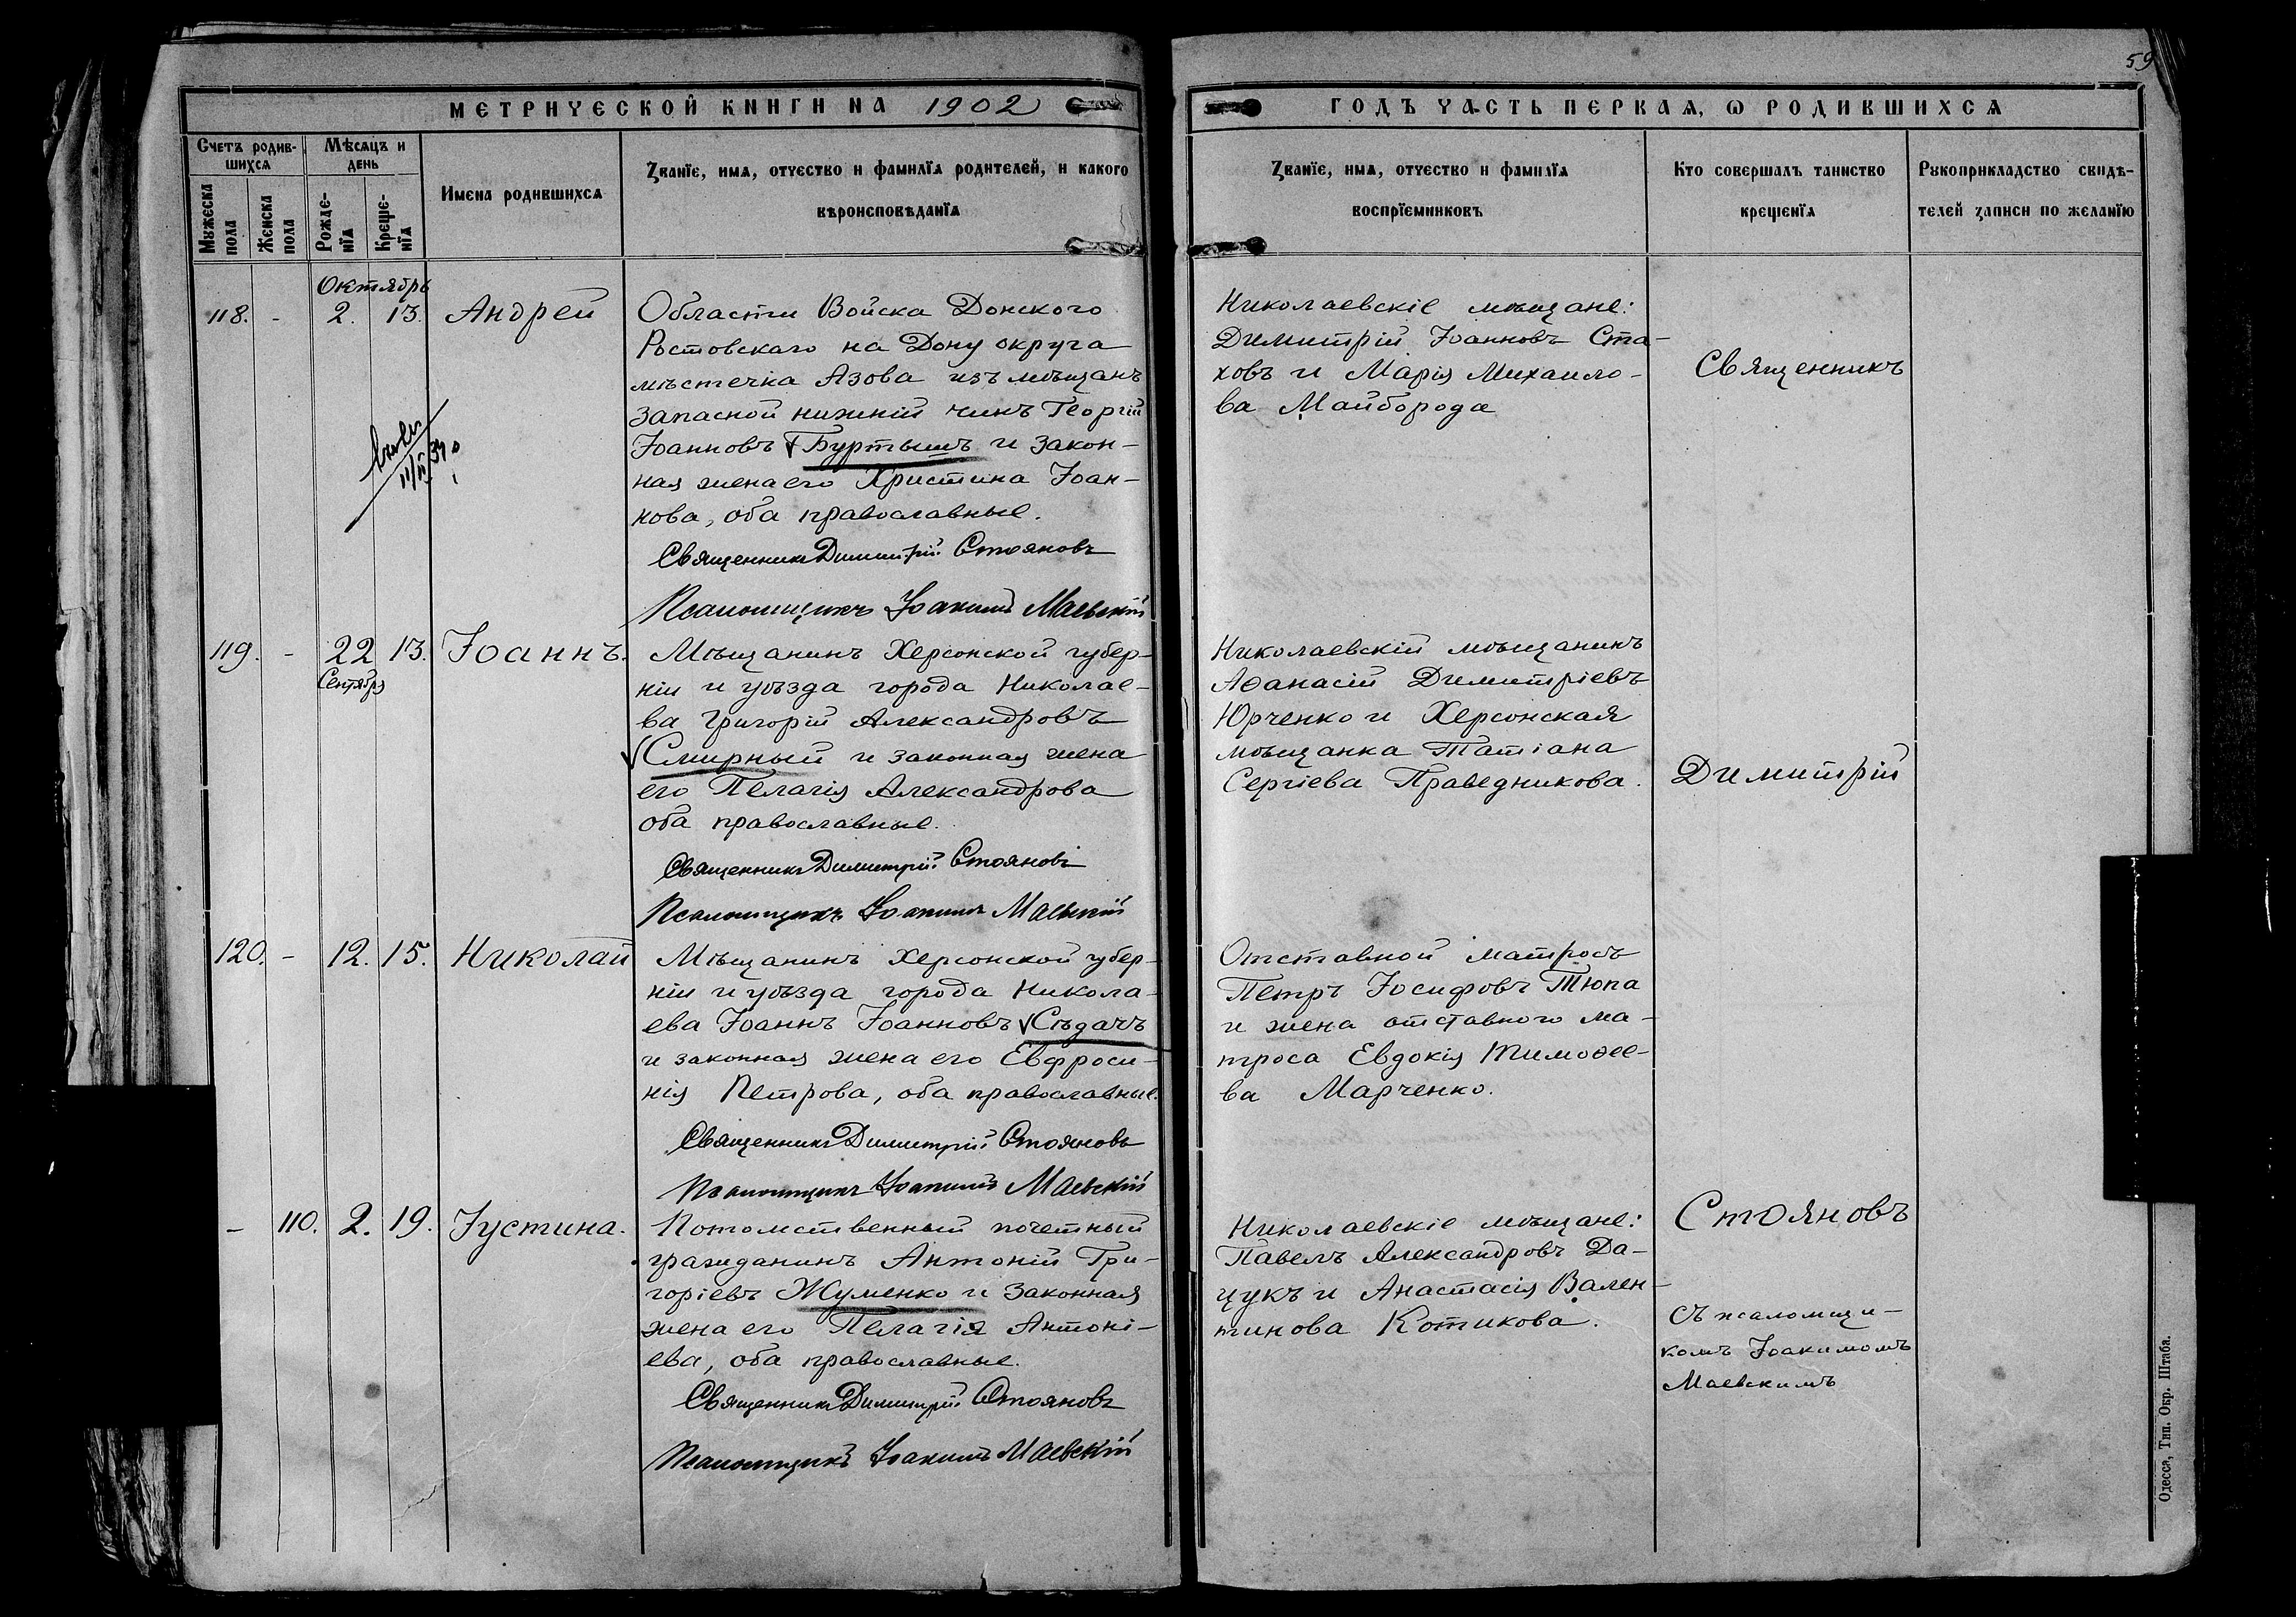 59
МЕТРИЧЕСКОЙ КНИГИ НА 1902
ГОДЪ ЧАСТЬ ПЕРВАЯ, Ѡ РОДИВШИХСЯ
Счетъ родив-
шихся
Мѣсяцъ и
день
Мужеска
пола
Женска
пола
Рожде-
нїя
Креще-
нїя
Имена родившихся
Званїе, имя, отчество и фамилїя родителей, и какого
вѣроисповѣданїя
Званїе, имя, отчество и фамилїя
воспрїемниковъ
Кто совершалъ таинство
крещенїя
Рукоприкладство свидѣ-
телей записи по желанїю
Октябрь
118. - 2. 13. Андрей
Области Войска Донского
Ростовскаго на Дону округа
мѣстечка Азова изъ мѣщанъ
запасной нижній чинъ Георгій
Іоанновъ Буртышъ и закон-
ная жена его Христина Іоан-
нова, оба православные.
Священникъ Димитрій Стояновъ
Псаломщикъ Іоакимъ Маевскій
Николаевскіе мѣщане:
Димитрій Іоанновъ Ста-
ховъ и Марія Михаило-
ва Майборода
119. - 22 13. Іоаннъ.
Сентября
Мѣщанинъ Херсонской губер-
ніи и уѣзда города Николае-
ва Григорій Александровъ
Смирный и законная жена
его Пелагія Александрова
оба православные.
Священникъ Димитрій Стояновъ
Псаломщикъ Іоакимъ Маевскій
Николаевскій мѣщанинъ
Аѳанасій Димитріевъ
Юрченко и Херсонская
мѣщанка Татіана
Сергіева Праведникова.
120. - 12. 15. Николай
Мѣщанинъ Херсонской губер-
ніи и уѣзда города Никола-
ева Іоаннъ Іоанновъ Сѣдачъ
и законная жена его Евфроси-
нія Петрова, оба православные.
Священникъ Димитрій Стояновъ
Псаломщикъ Іоакимъ Маевскій
Отставной матросъ
Петръ Іосифовъ Тюпа
и жена отставного ма-
троса Евдокія Тимоѳее-
ва Марченко.
- 110. 2. 19. Іустина.
Потомственный почетный
гражданинъ Антоній Гри-
горіевъ Жуменко и законная
жена его Пелагія Антоні-
ева, оба православные.
Священникъ Димитрій Стояновъ
Псаломщикъ Іоакимъ Маевскій
Николаевскіе мѣщане:
Павелъ Александровъ Да-
цукъ и Анастасія Вален-
тинова Котикова.
Священникъ
Димитрій
Стояновъ
съ псаломщи-
комъ Іоакимомъ
Маевскимъ
Одесса, Тип. Окр. Штаба.